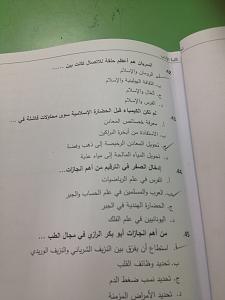 السريان هم أعظم حلقة للاتصال كانت بين ...
أ. الرومان والإسلام
ب. الثقافة الهيلينية والإسلام
ج. الغال والإسلام
د. الفرس والإسلام
لم تكن الكيمياء قبل الحضارة الإسلامية سوى محاولات فاشلة في ...
أ. معرفة خصائص المعادن
ب. الاستفادة من أبخرة البراكين
ج. تحويل المعادن الرخيصة إلى ذهب وفضة
د. تحويل المياه المالحة إلى مياه عذبة
إدخال الصفر في الترقيم من أهم انجازات....
أ. الفرس في علم الرياضيات
ب. العرب والمسلمين في علم الحساب والجبر
ج. الحضارة الهندية في الجبر
د. اليونانيين في علم الفلك
45. من أهم انجازات أبو بكر الرازي في مجال الطب ...
أ. استطاع أن يفرق بين النزيف الشرياني والنزيف الوريدي
ب. تحديد وظائف القلب
ج. تحديد نسب ضغط الدم
د. تحديد الأمراض المزمنة